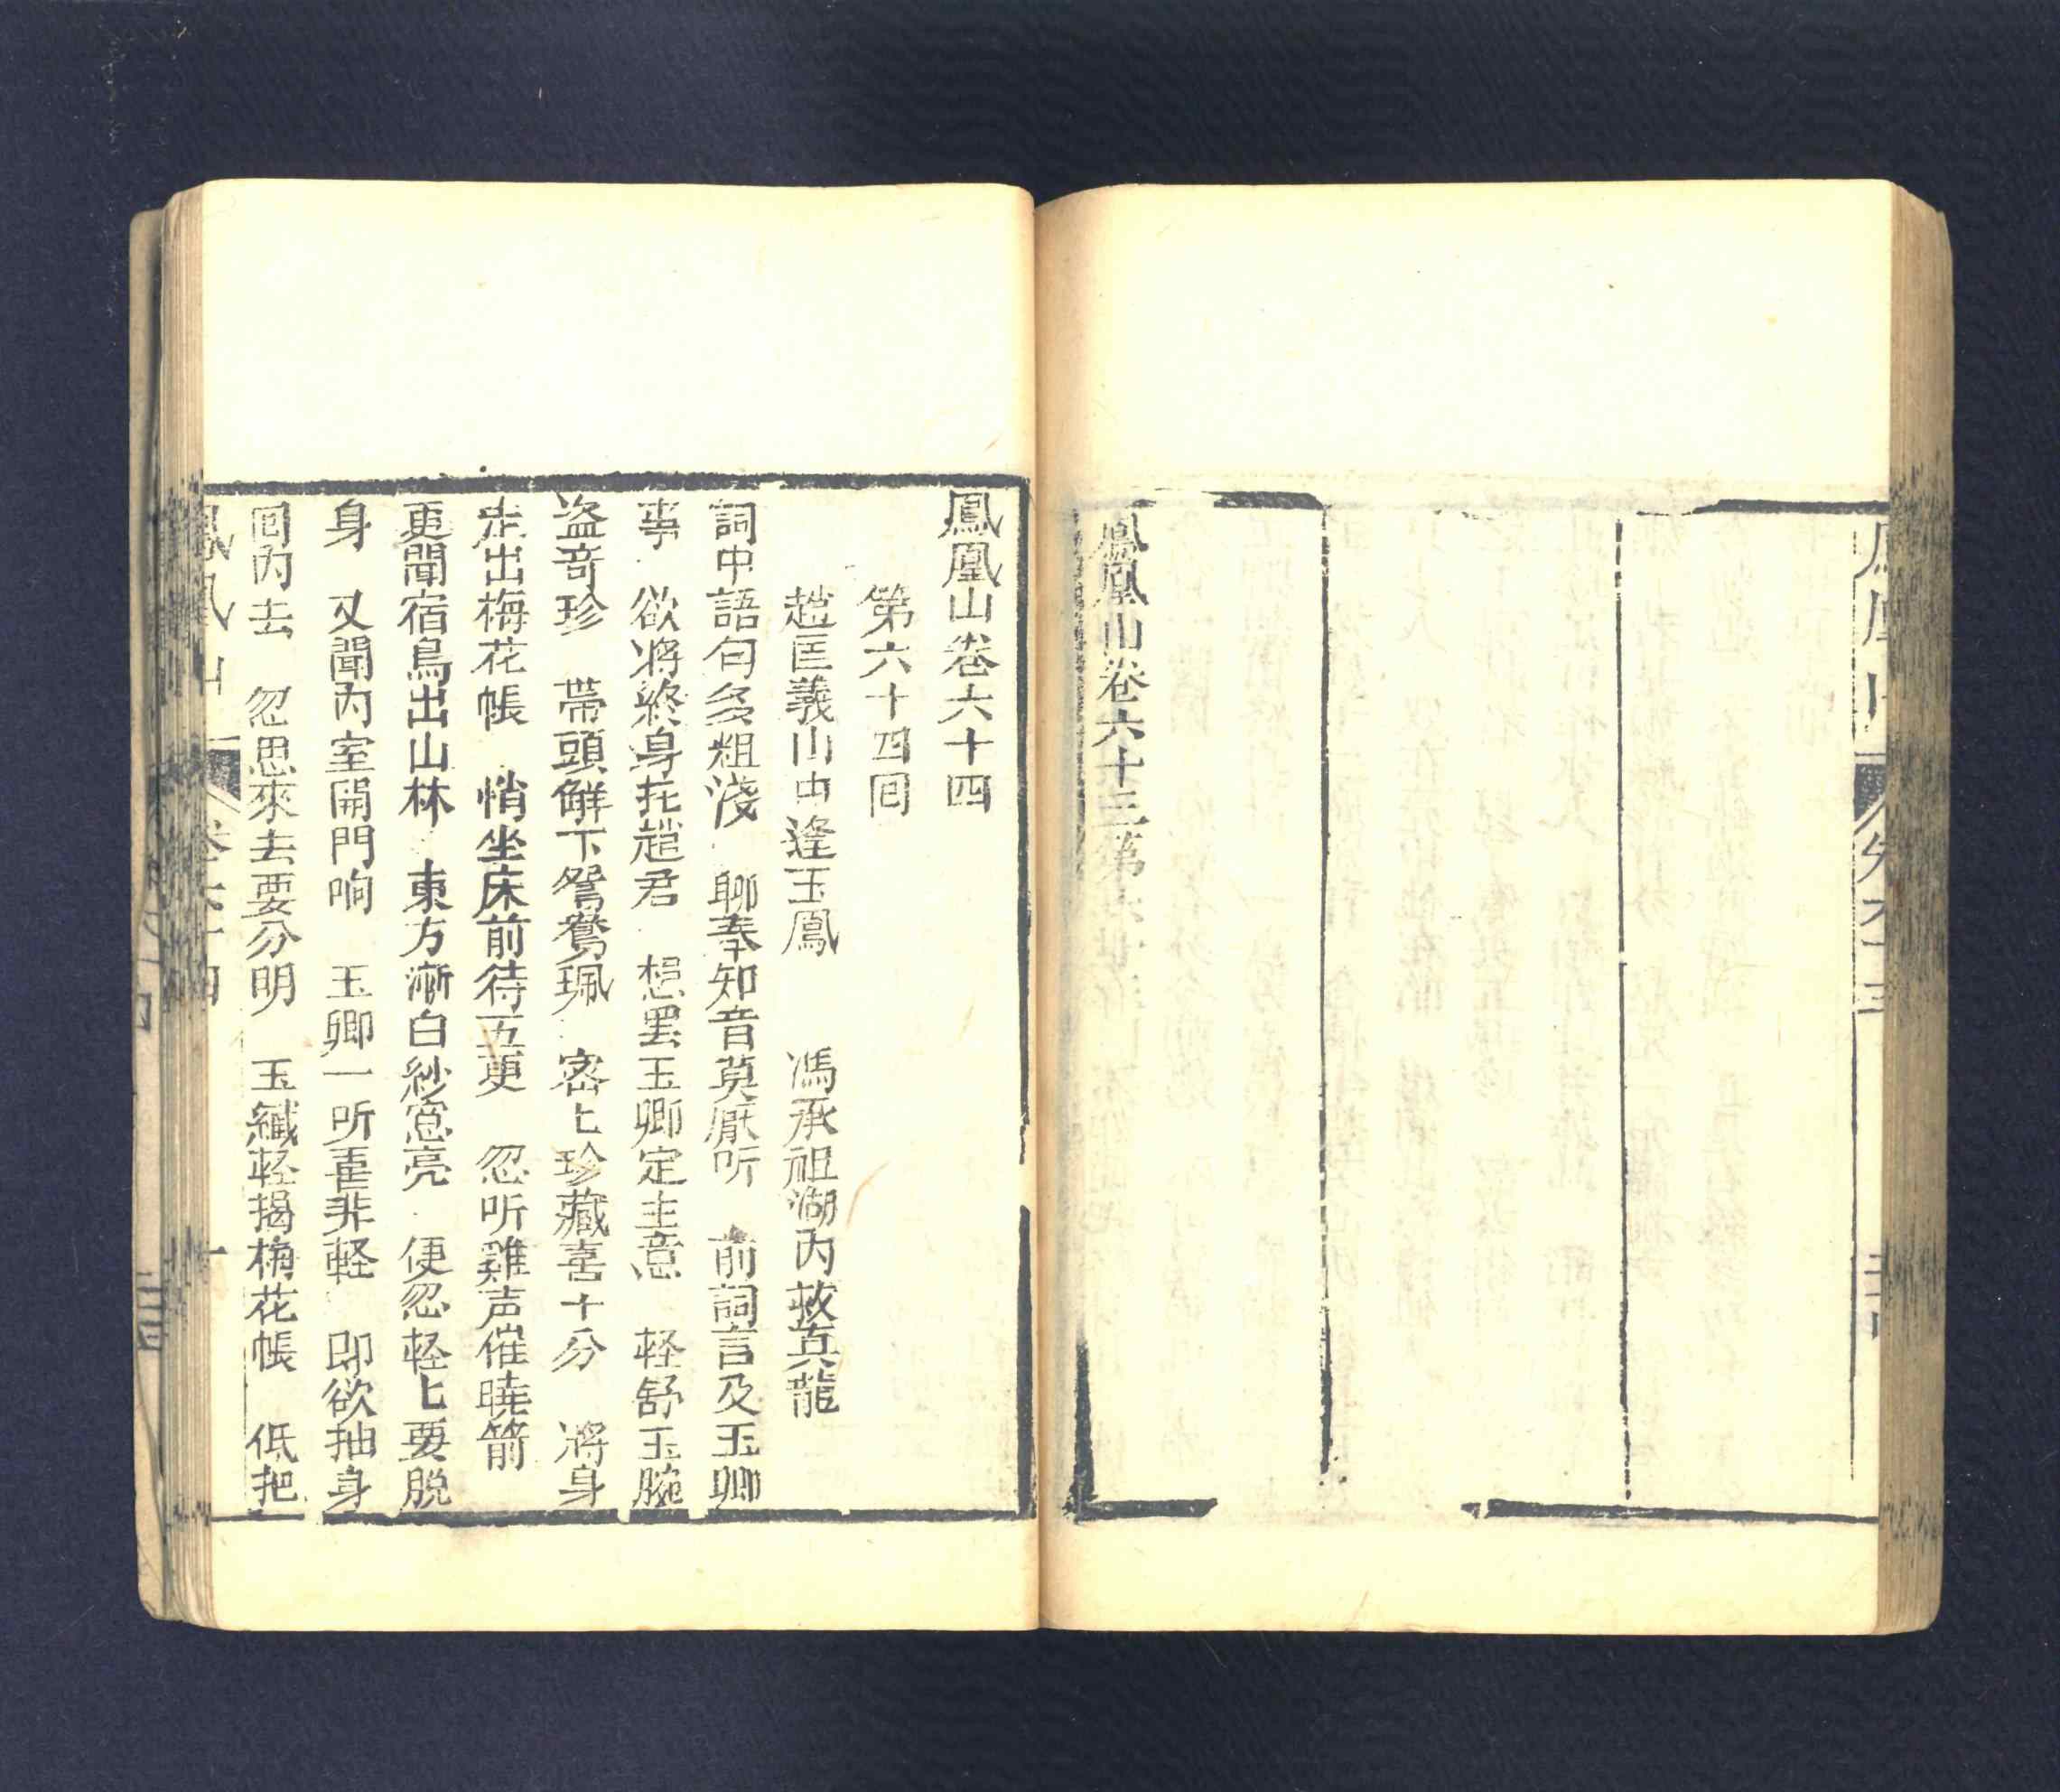 鳳凰山卷六十三第
鳳凰山卷六十四
第六十四囘
趙匡義山中逢玉鳳　馮承祖湖內救真龍
詞中語句多粗淺　聊奉知音莫厭听　前詞言及玉卿
事　欲將終身托趙君　想罢玉卿定主意　轻舒玉腕
盗奇珍　帶頭鮮下鴛鴦珮　密匕珍藏喜十分　將身
走出梅花帳　悄坐床前待五更　忽听雞声催曉箭
更聞宿鳥出山林　東方漸白紗窓亮　便忍轻匕要脱
身　又聞內室開門响　玉卿一听事非轻　即欲抽身
囘內去　忽思來去要分明　玉纎轻揭梅花帳　低把
鳳凰山　卷六十四　一